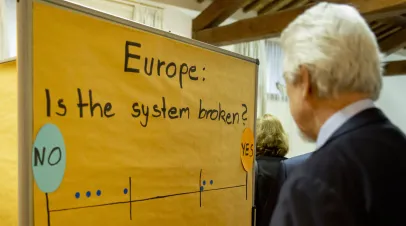 Europe:
Is the system broken?
NO
YES